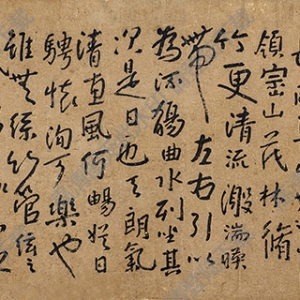 領崇山茂林脩
竹更清流激湍暎
帶左右引以
為流觴曲水列坐其
次是日也天朗氣
清惠風何暢娱目
騁懷洵可樂也
雖無絲竹管弦之